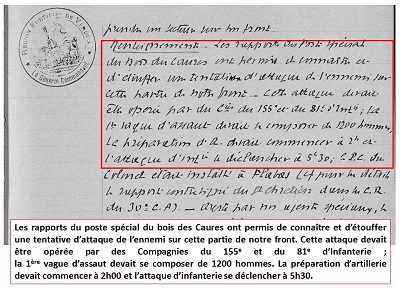 RÉGION FORTIFIÉE DE VERDUN
Le Général Commandant
prendre un secteur sur un front.
Renseignement. Les rapports du poste spécial
du bois des Caures ont permis de connaître et
d'étouffer une tentative d'attaque de l'ennemi sur
cette partie de notre front. Cette attaque devait
être opérée par des Cies du 155e et du 81e d'Inf.ie ; la
1e vague d'assaut devait se composer de 1200 hommes,
la préparation d'A. devait commencer à 2h et
l'attaque d'inf.ie se déclencher à 5h30 ; Le P.C. du
Colonel était installé à Flabas (cf. pour les détails
le rapport du Lt chrétien dans le C.R.
du 30e C.A) par un agent spécial,
Les rapports du poste spécial du bois des Caures ont permis de connaître et d'étouffer
une tentative d'attaque de l'ennemi sur cette partie de notre front. Cette attaque devait
être opérée par des Compagnies du 155e et du 81e d'Infanterie ;
la 1ère vague d'assaut devait se composer de 1200 hommes. La préparation d'artillerie
devait commencer à 2h00 et l'attaque d'infanterie se déclencher à 5h30.